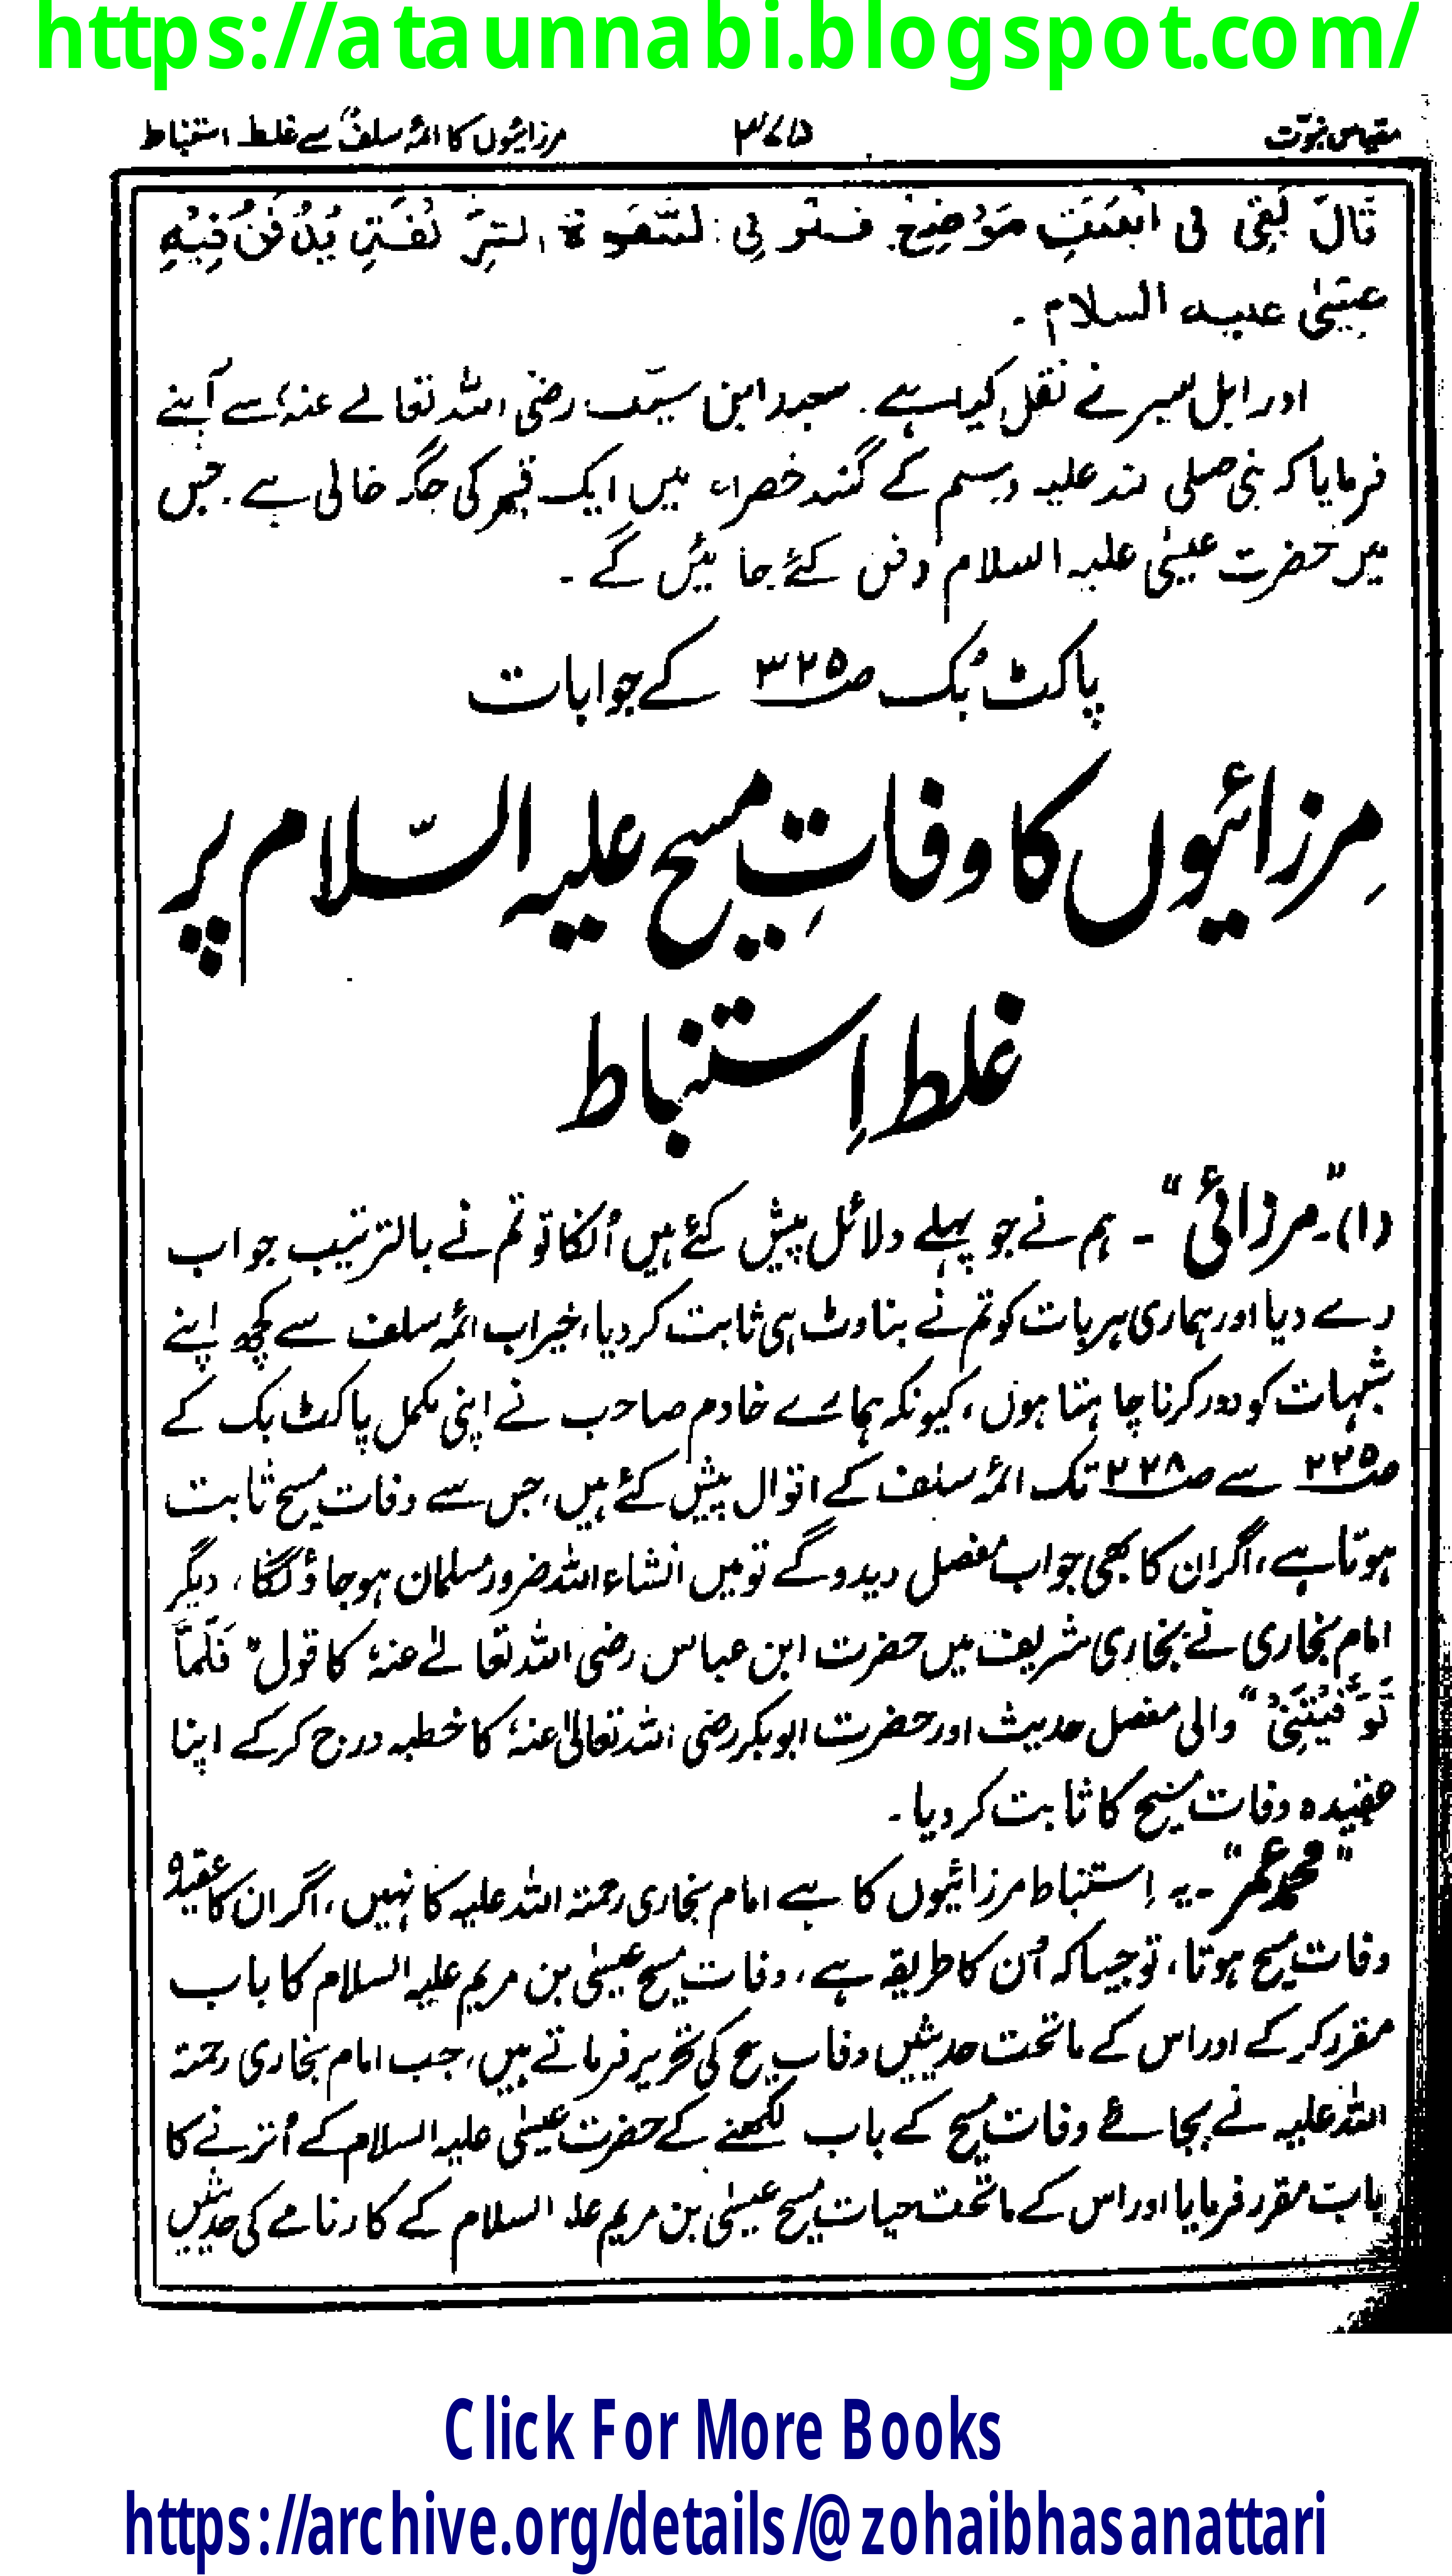 https://ataunnabi.blogspot.com/
مقیاس نبوّت ۳۷۵ مرزائیوں کا ائمہ سلفؒ سے غلط استنباط
قَالَ بَقِیَ فی الْبَیْتِ مَوْضِعُ قبر فی السَّهْوَةِ یُدْفَنُ فِیْهِ
عیسٰی علیه السلام ۔
اور اہل سیر نے نقل کیا ہے ۔ سعید ابن مسیّب رضی اللہ تعالےٰ عنہٗ سے آپنے
فرمایا کہ نبی صلی اللہ علیہ وسلم کے گنبد خضراء میں ایک قبر کی جگہ خالی ہے ۔ جس
میں حضرت عیسٰی علیہ السلام دفن کئے جائیں گے ۔
پاکٹ بُک ص۳۲۵ کے جوابات
مِرزائیوں کا وفاتِ مسیح علیہ السّلام پر
غلط اِستنباط
(۱)۔ "مرزائی" ۔ ہم نے جو پہلے دلائل پیش کئے ہیں اُنکا تو تم نے بالترتیب جواب
دے دیا اور ہماری ہر بات کو تم نے بناوٹ ہی ثابت کر دیا، خیر اب ائمہ سلف سے کچھ اپنے
شبہات کو دور کرنا چاہتا ہوں، کیونکہ ہمارے خادم صاحب نے اپنی مکمل پاکٹ بک کے
ص۲۲۵ سے ص۲۲۸ تک ائمہ سلف کے اقوال پیش کئے ہیں، جس سے وفات مسیح ثابت
ہوتا ہے، اگر ان کا بھی جواب مفصل دیدو گے تو میں انشاء اللہ ضرور مسلمان ہو جاؤنگا، دیگر
امام بخاری نے بخاری شریف میں حضرت ابن عباس رضی اللہ تعالےٰ عنہٗ کا قول "فَلَمَّا
تَوَفَّیْتَنِیْ" والی مفصل حدیث اور حضرت ابوبکر رضی اللہ تعالیٰ عنہٗ کا خطبہ درج کرکے اپنا
عقیدہ وفات مسیح کا ثابت کر دیا ۔
"محمد عمر" ۔ یہ اِستنباط مرزائیوں کا ہے امام بخاری رحمتہ اللہ علیہ کا نہیں، اگر ان کا عقیدہ
وفات مسیح ہوتا، تو جیسا کہ اُن کا طریقہ ہے، وفات مسیح عیسٰی بن مریم علیہ السلام کا باب
مقرر کرکے اور اس کے ماتحت حدیثیں وفات مسیح کی تحریر فرماتے ہیں، جب امام بخاری رحمتہ
اللہ علیہ نے بجائے وفات مسیح کے باب لکھنے کے حضرت عیسٰی علیہ السلام کے اُترنے کا
باب مقرر فرمایا اور اس کے ماتحت حیات مسیح عیسٰی بن مریم علیہ السلام کے کارنامے کی حدیثیں
Click For More Books
https://archive.org/details/@zohaibhasanattari